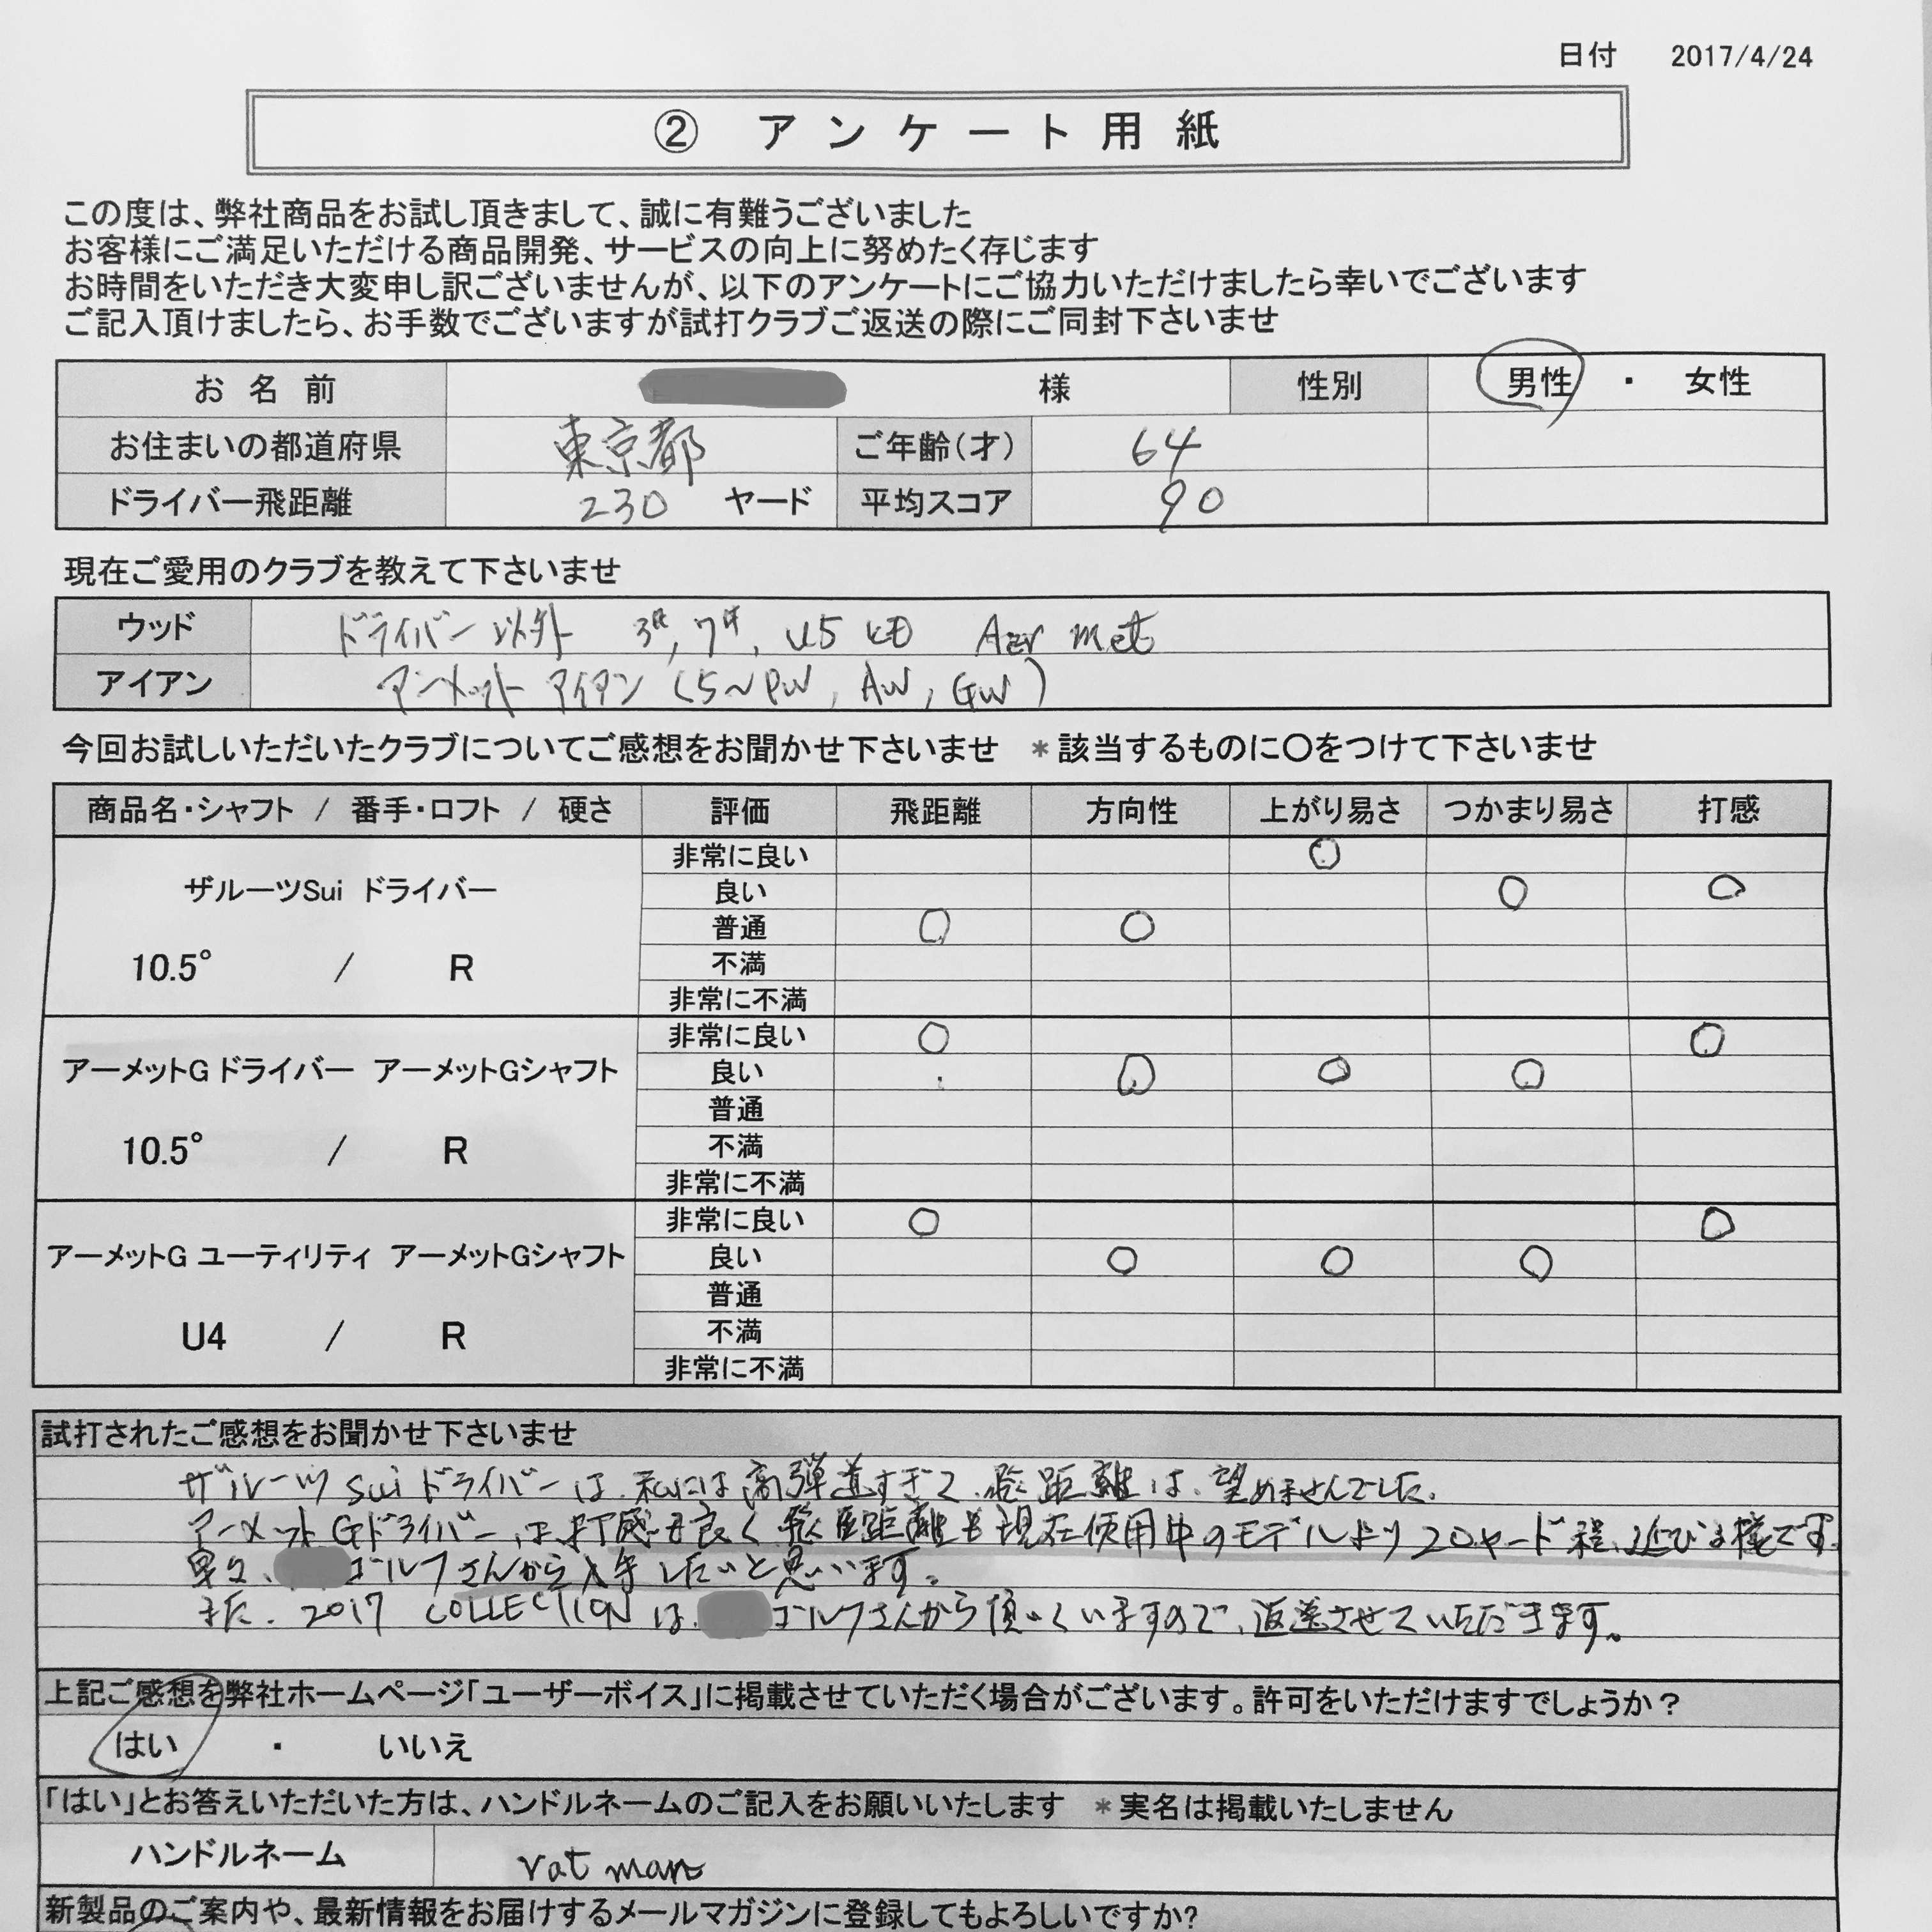 日付 2017/4/24
② アンケート用紙
この度は、弊社商品をお試し頂きまして、誠に有難うございました
お客様にご満足いただける商品開発、サービスの向上に努めたく存じます
お時間をいただき大変申し訳ございませんが、以下のアンケートにご協力いただけましたら幸いでございます
ご記入頂けましたら、お手数でございますが試打クラブご返送の際にご同封下さいませ
お名前 様 性別 男性 ・ 女性
お住まいの都道府県 東京都 ご年齢(才) 64
ドライバー飛距離 230 ヤード 平均スコア 90
現在ご愛用のクラブを教えて下さいませ
ウッド ドライバー以外 3w, 7w, U5
アイアン アーメットアイアン (5~PW, AW, GW)
今回お試しいただいたクラブについてご感想をお聞かせ下さいませ *該当するものに〇をつけて下さいませ
商品名・シャフト / 番手・ロフト / 硬さ 評価 飛距離 方向性 上がり易さ つかまり易さ 打感
ザルーツSui ドライバー
10.5° / R
非常に良い ○
良い ○ ○
普通 ○ ○
不満
非常に不満
アーメットG ドライバー アーメットGシャフト
10.5° / R
非常に良い ○ ○
良い ○ ○ ○
普通
不満
非常に不満
アーメットG ユーティリティ アーメットGシャフト
U4 / R
非常に良い ○ ○
良い ○ ○ ○
普通
不満
非常に不満
試打されたご感想をお聞かせ下さいませ
ザルーツSuiドライバーは、私には高弾道すぎて、飛距離は、望めませんでした。
アーメットGドライバーは打感も良く、飛距離も現在使用中のモデルより20ヤード程、延びる様です。
早々、ゴルフさんから入手したいと思います。
また、2017 COLLECTIONは、ゴルフさんから頂いていますので、返送させていただきます。
上記ご感想を弊社ホームページ「ユーザーボイス」に掲載させていただく場合がございます。許可をいただけますでしょうか?
はい ・ いいえ
「はい」とお答えいただいた方は、ハンドルネームのご記入をお願いいたします *実名は掲載いたしません
ハンドルネーム vat man
新製品のご案内や、最新情報をお届けするメールマガジンに登録してもよろしいですか?